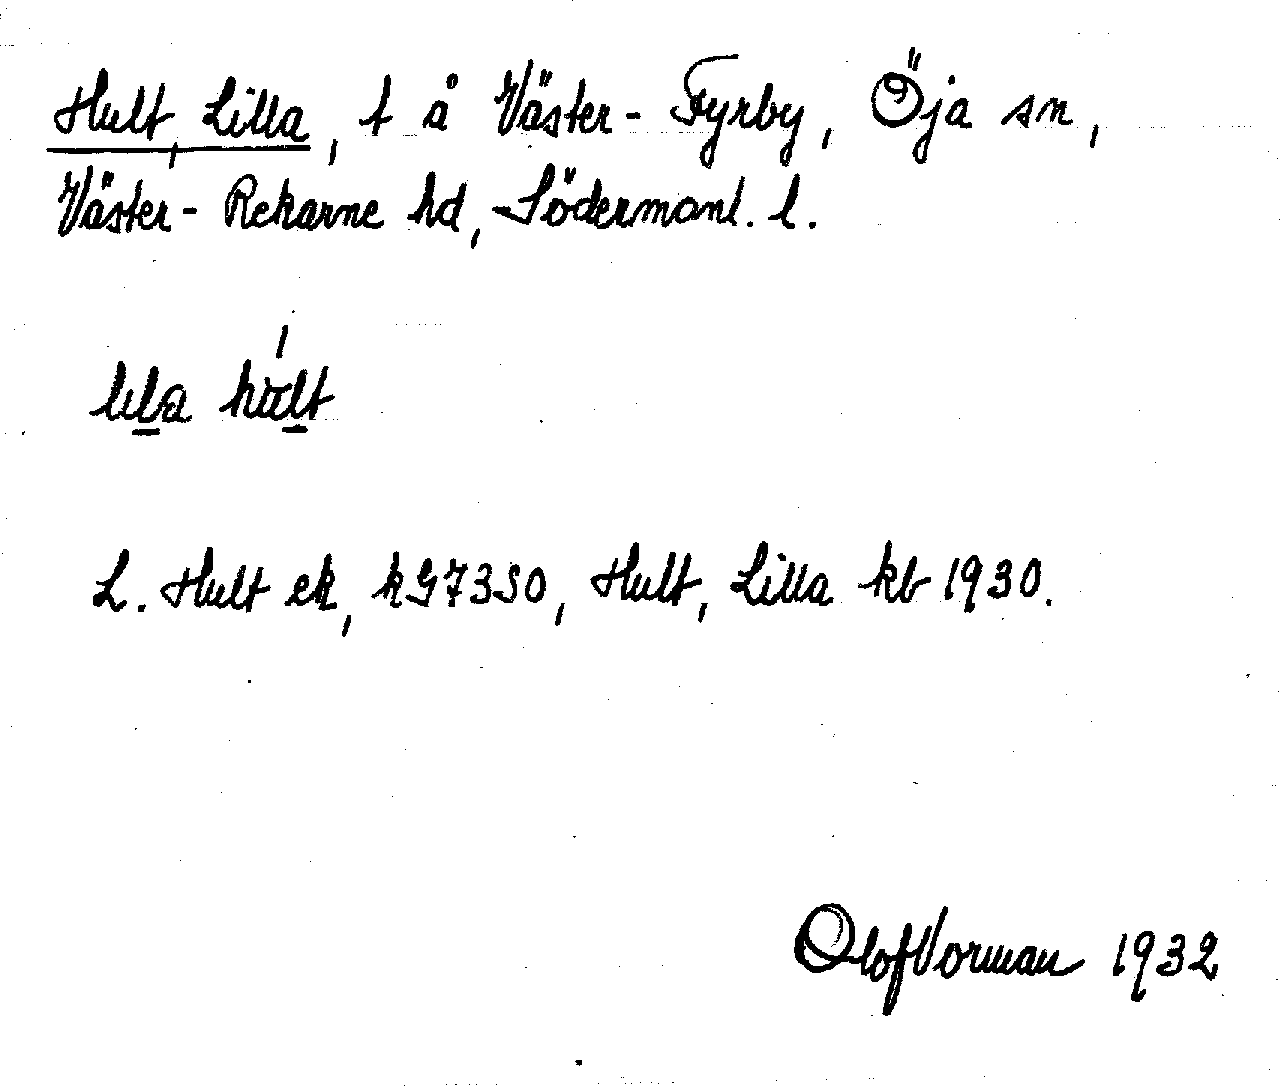 Hult, Lilla, t å Väster-Fyrby, Öja sn,
Väster-Rekarne hd, Södermanl. l.
lila hult
L. Hult ek, kG7350, Hult, Lilla kb 1930.
Olof Vorman 1932